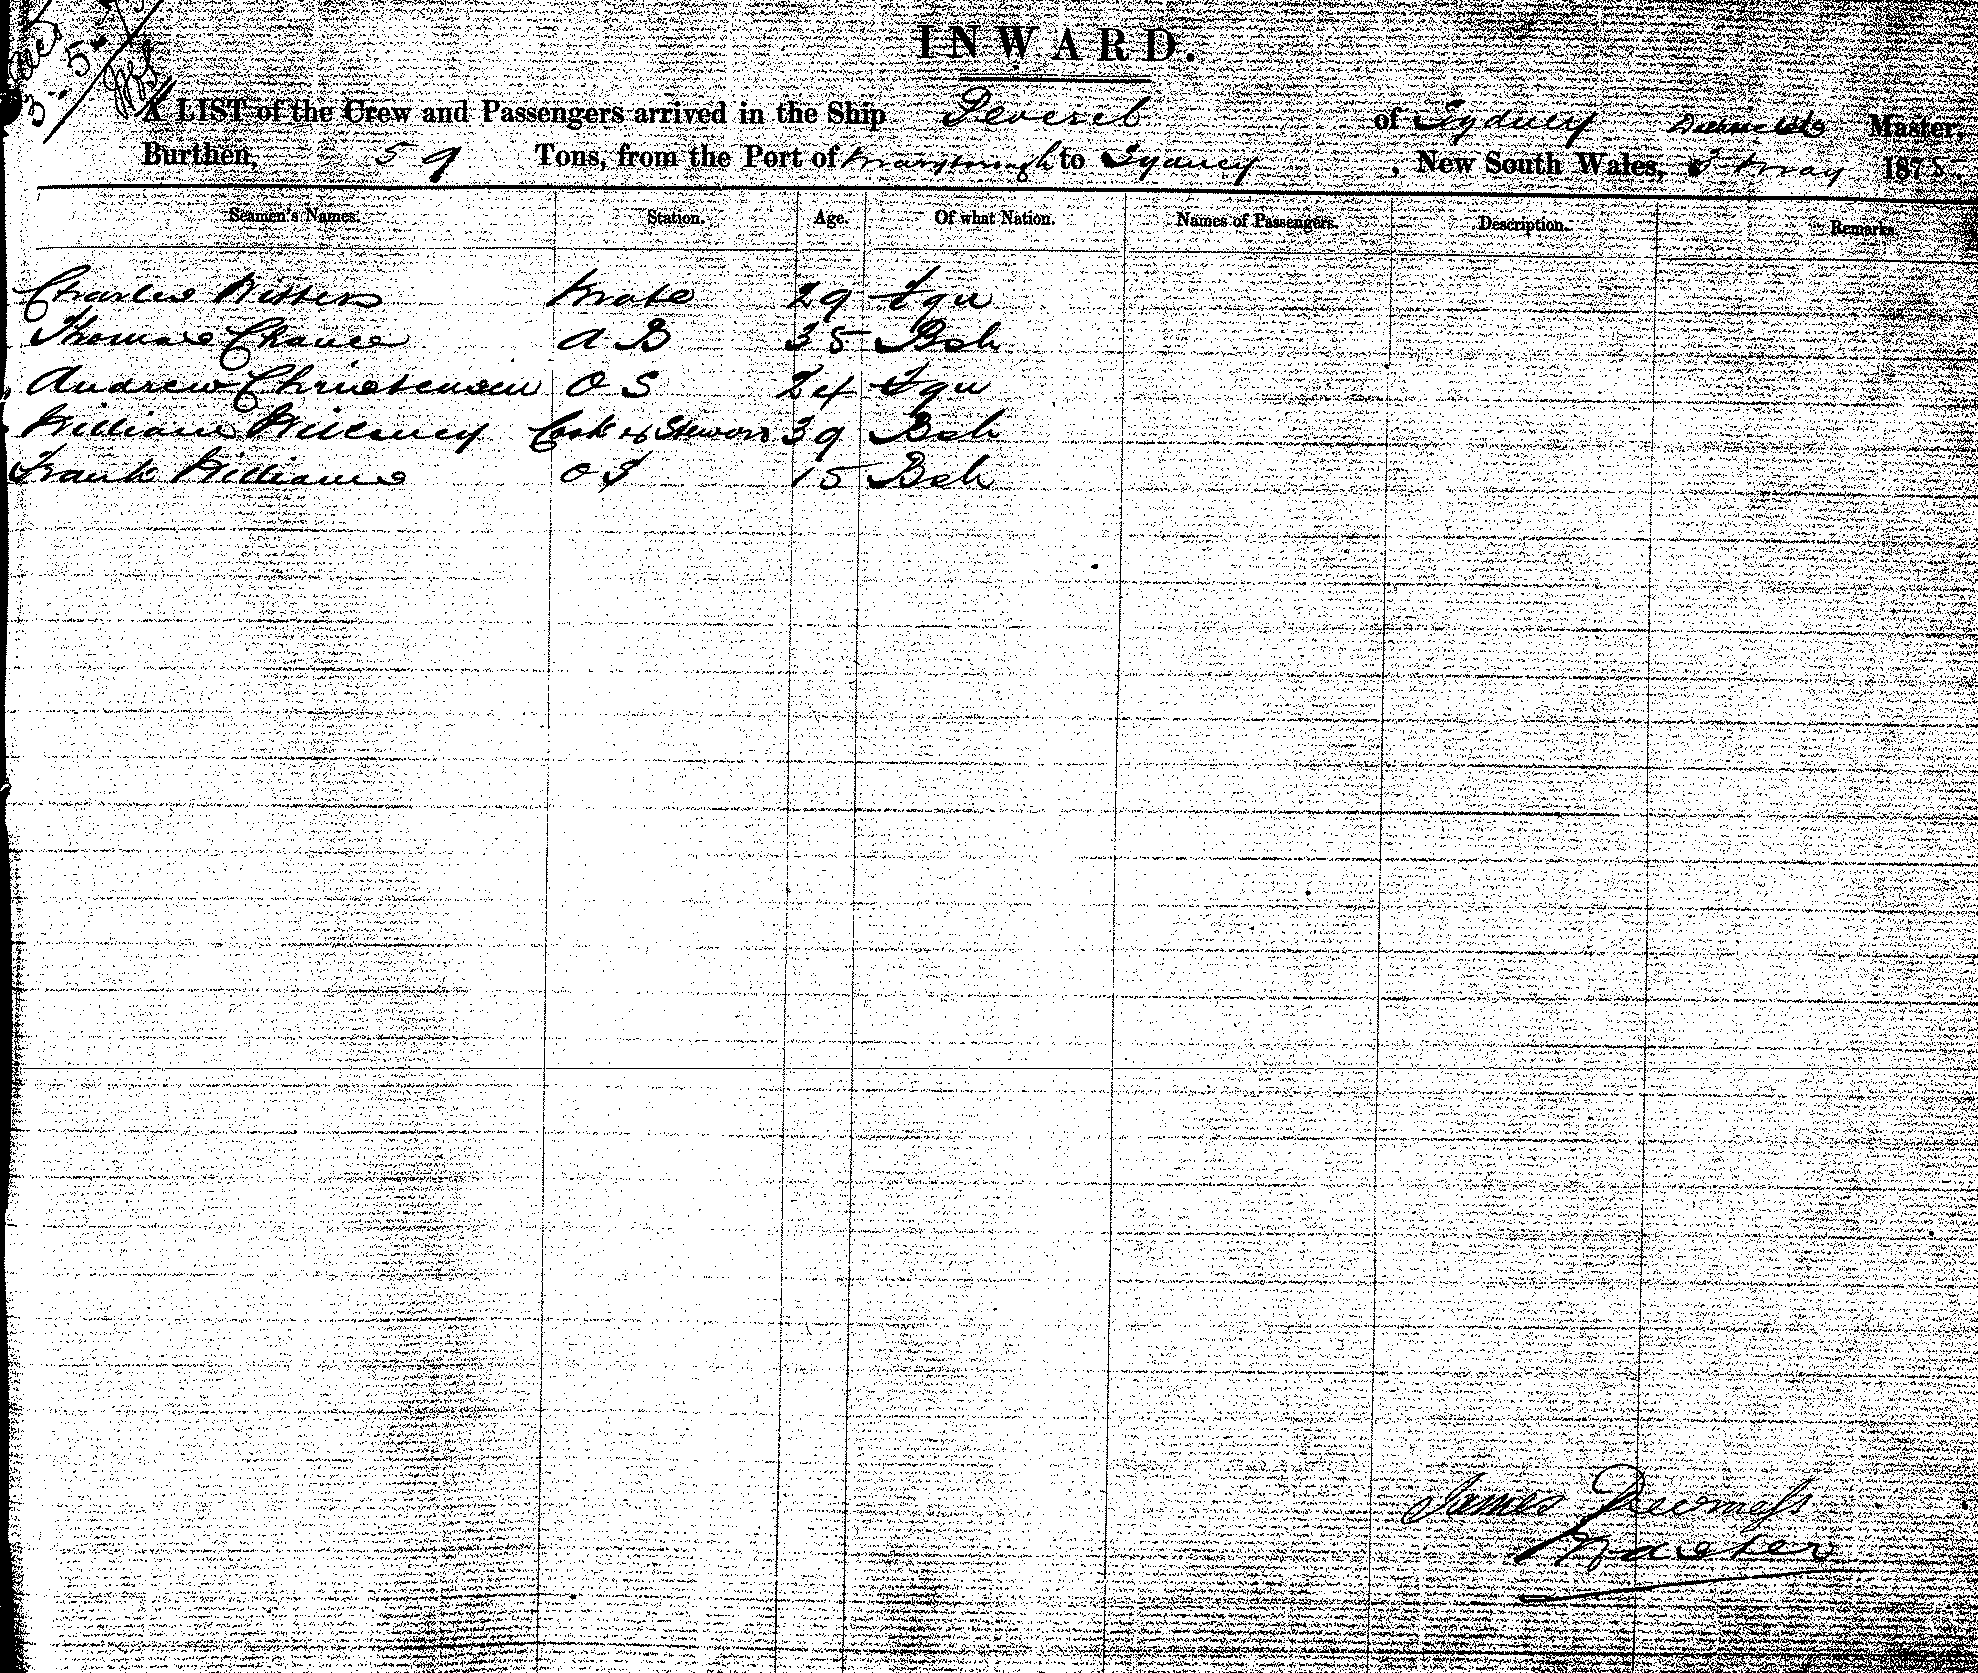 INWARD.
A LIST of the Crew and Passengers arrived in the Ship Peveril of Sydney Master,
Burthen, 59 Tons, from the Port of Maryborough to Sydney, New South Wales, 3 May 1875.
Seamen's Names. Station. Age. Of what Nation. Names of Passengers. Description. Remarks.
Charles Mate 29 Fgn
Thomas Chance A B 35 Bsh
Andrew Christensen O S 24 Fgn
William Cook & Steward 39 Bsh
Frank Williams O S 15 Bsh
James
Master